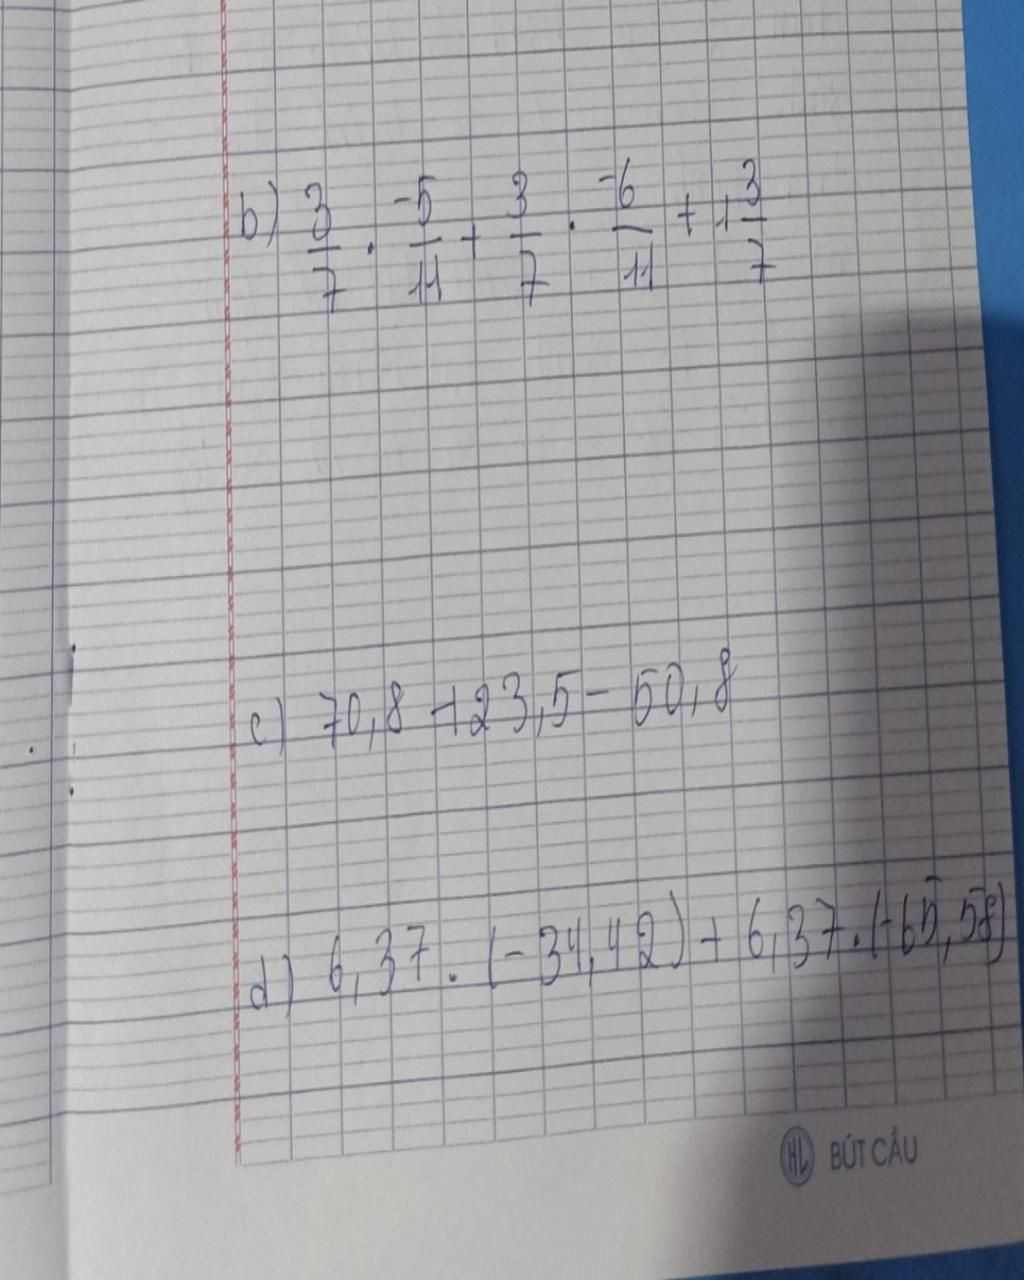 b) 3/7 . -5/11 + 3/7 . -6/11 + 1 3/7
c) 70,8 + 23,5 - 50,8
d) 6,37 . (-34,42) + 6,37 . (-65,58)
HL BÚT CẦU